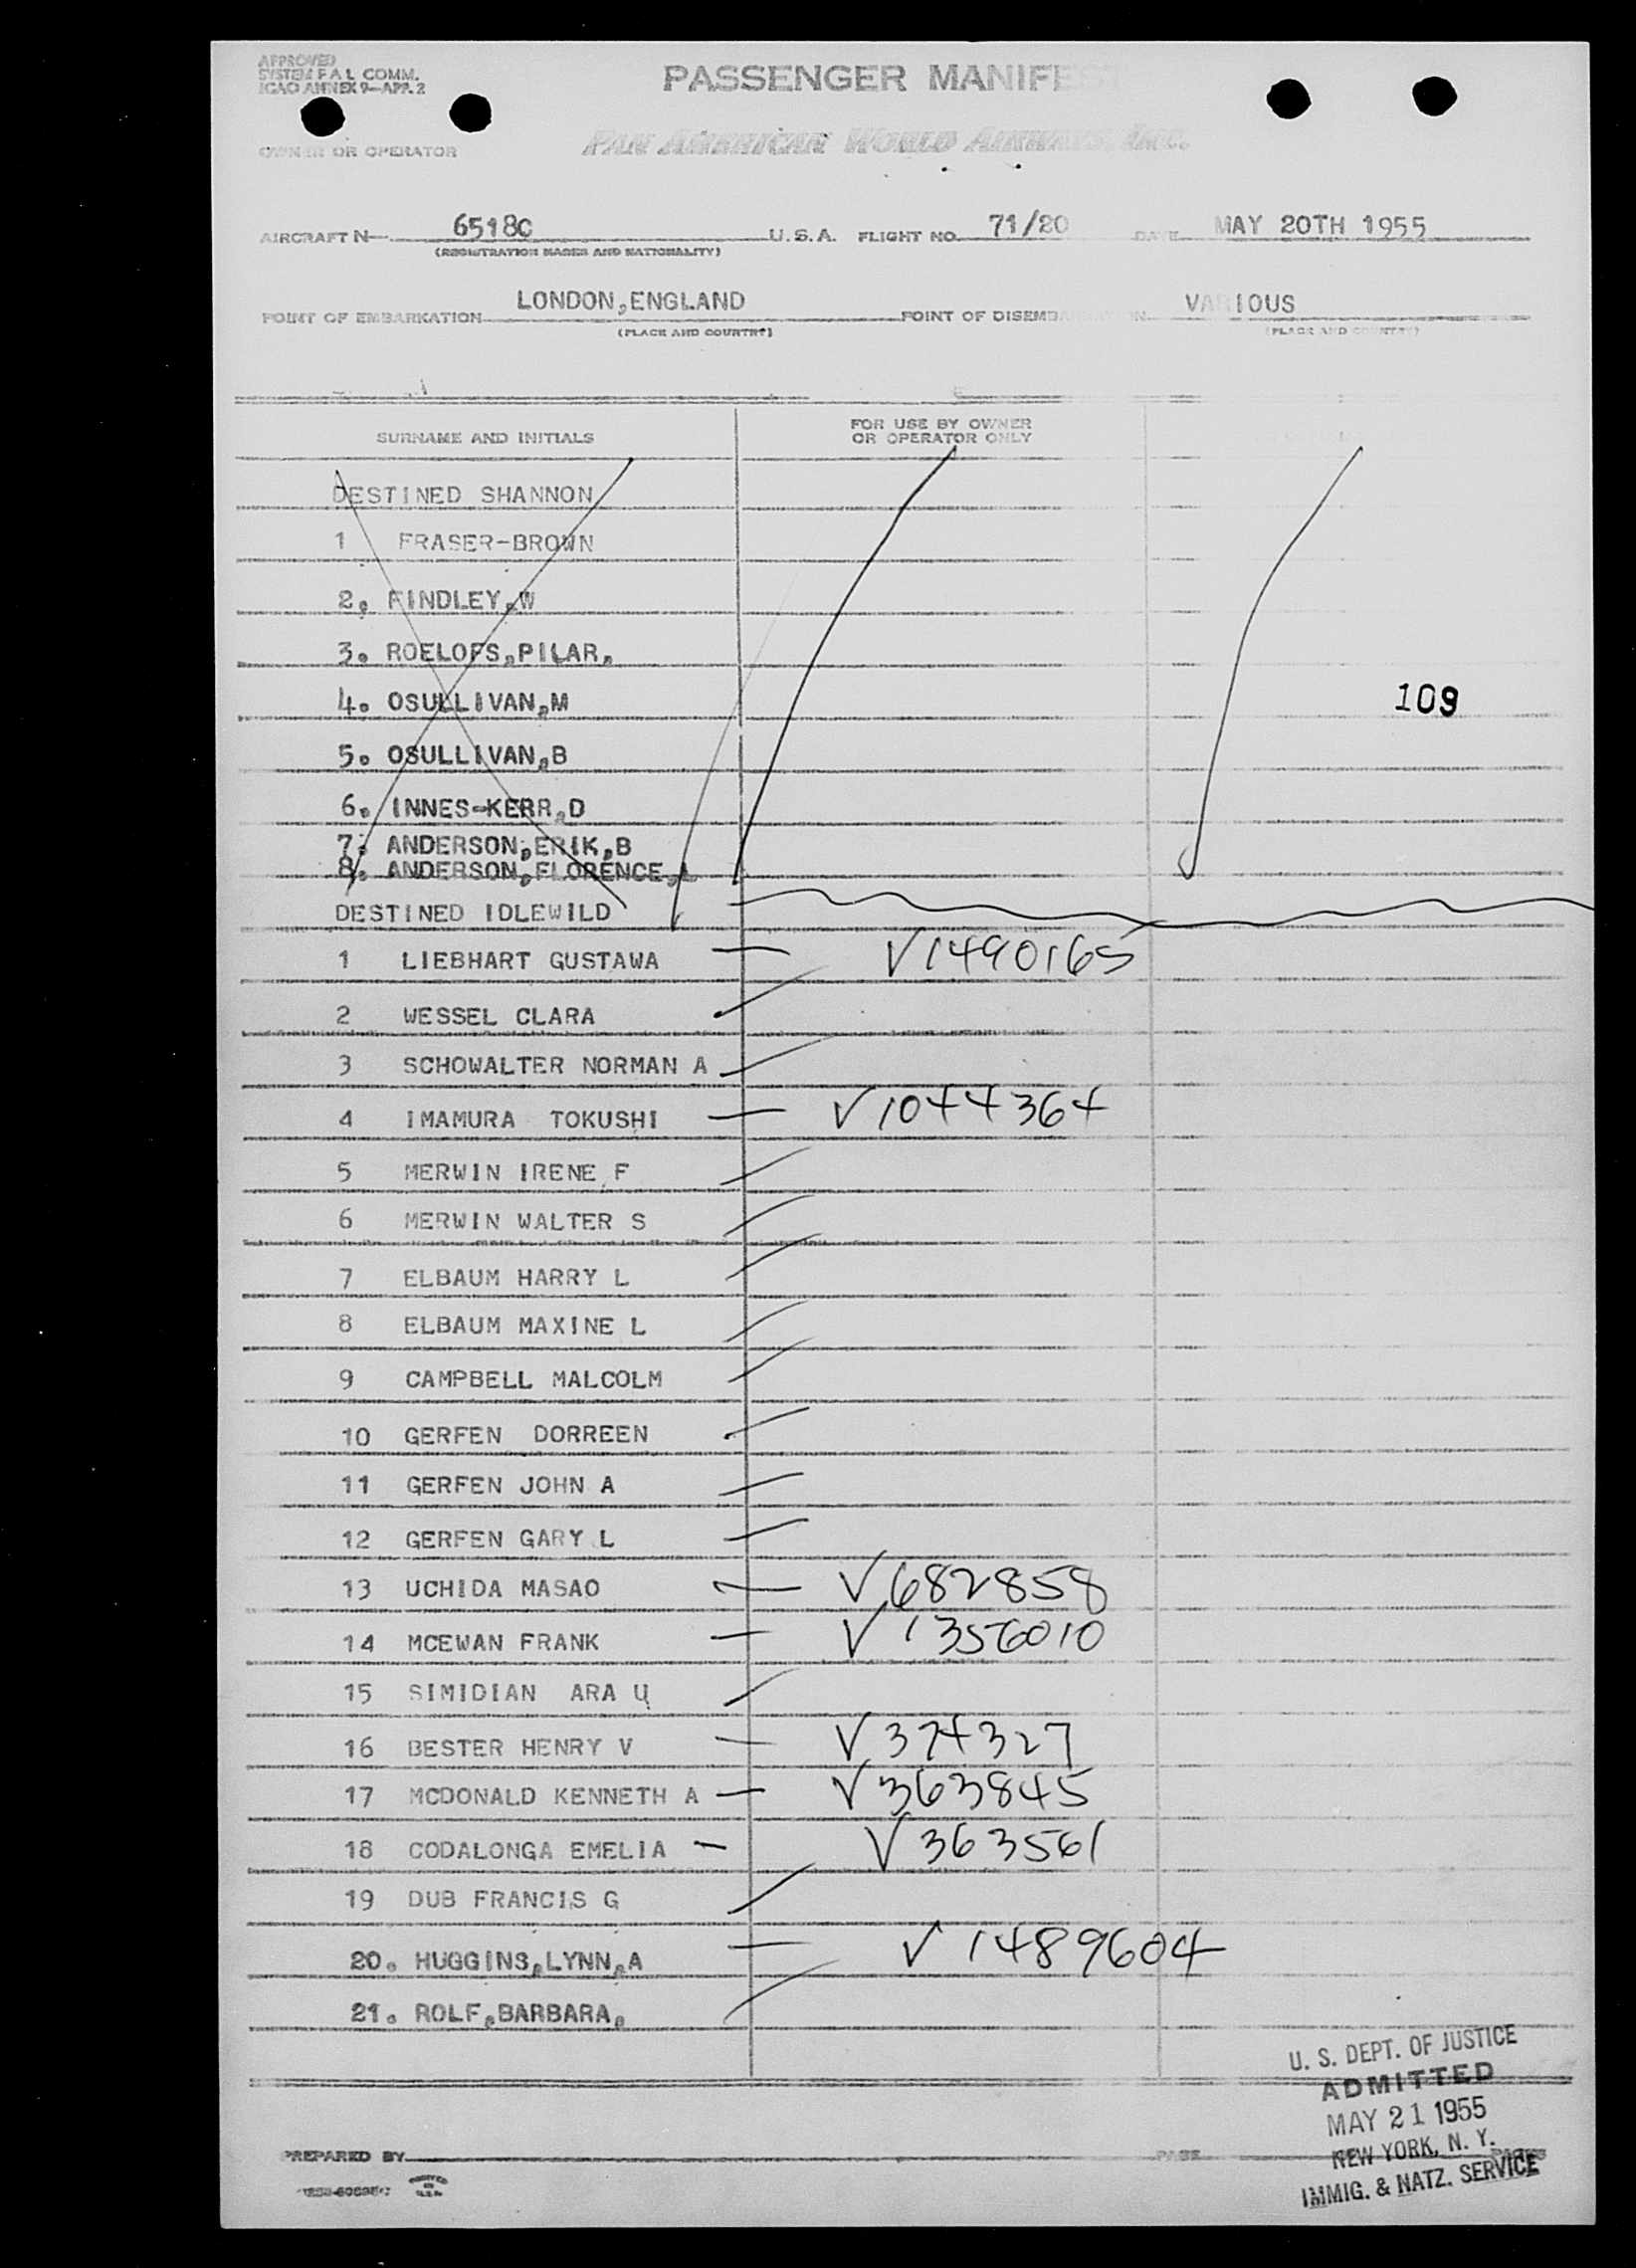 APPROVED
SYSTEM F A L COMM.
ICAO ANNEX 9—APP. 2
PASSENGER MANIFES
OWNER OR OPERATOR
PAN AMERICAN WORLD AIRWAYS, INC.
AIRCRAFT N 6518C U.S.A. FLIGHT NO. 71/20 DATE MAY 20TH 1955
(REGISTRATION MARKS AND NATIONALITY)
POINT OF EMBARKATION LONDON,ENGLAND POINT OF DISEMBARKATION VARIOUS
(PLACE AND COUNTRY) (PLACE AND COUNTRY)
SURNAME AND INITIALS
FOR USE BY OWNER
OR OPERATOR ONLY
DESTINED SHANNON
1 FRASER-BROWN
2. FINDLEY,W
3. ROELOFS,PILAR,
4. OSULLIVAN,M 109
5. OSULLIVAN,B
6. INNES-KERR,D
7. ANDERSON,ERIK,B
8. ANDERSON,FLORENCE,L
DESTINED IDLEWILD
1 LIEBHART GUSTAWA — √1490165
2 WESSEL CLARA
3 SCHOWALTER NORMAN A
4 IMAMURA TOKUSHI — √1044364
5 MERWIN IRENE F
6 MERWIN WALTER S
7 ELBAUM HARRY L
8 ELBAUM MAXINE L
9 CAMPBELL MALCOLM
10 GERFEN DORREEN
11 GERFEN JOHN A
12 GERFEN GARY L
13 UCHIDA MASAO — √682858
14 MCEWAN FRANK — √1356010
15 SIMIDIAN ARA U
16 BESTER HENRY V — √374327
17 MCDONALD KENNETH A — √363845
18 CODALONGA EMELIA — √363561
19 DUB FRANCIS G
20. HUGGINS,LYNN,A — √1489604
21. ROLF,BARBARA,
U. S. DEPT. OF JUSTICE
ADMITTED
MAY 21 1955
NEW YORK, N. Y.
IMMIG. & NATZ. SERVICE
PREPARED BY PAGE PAGES
PRINTED
IN
U.S.A.